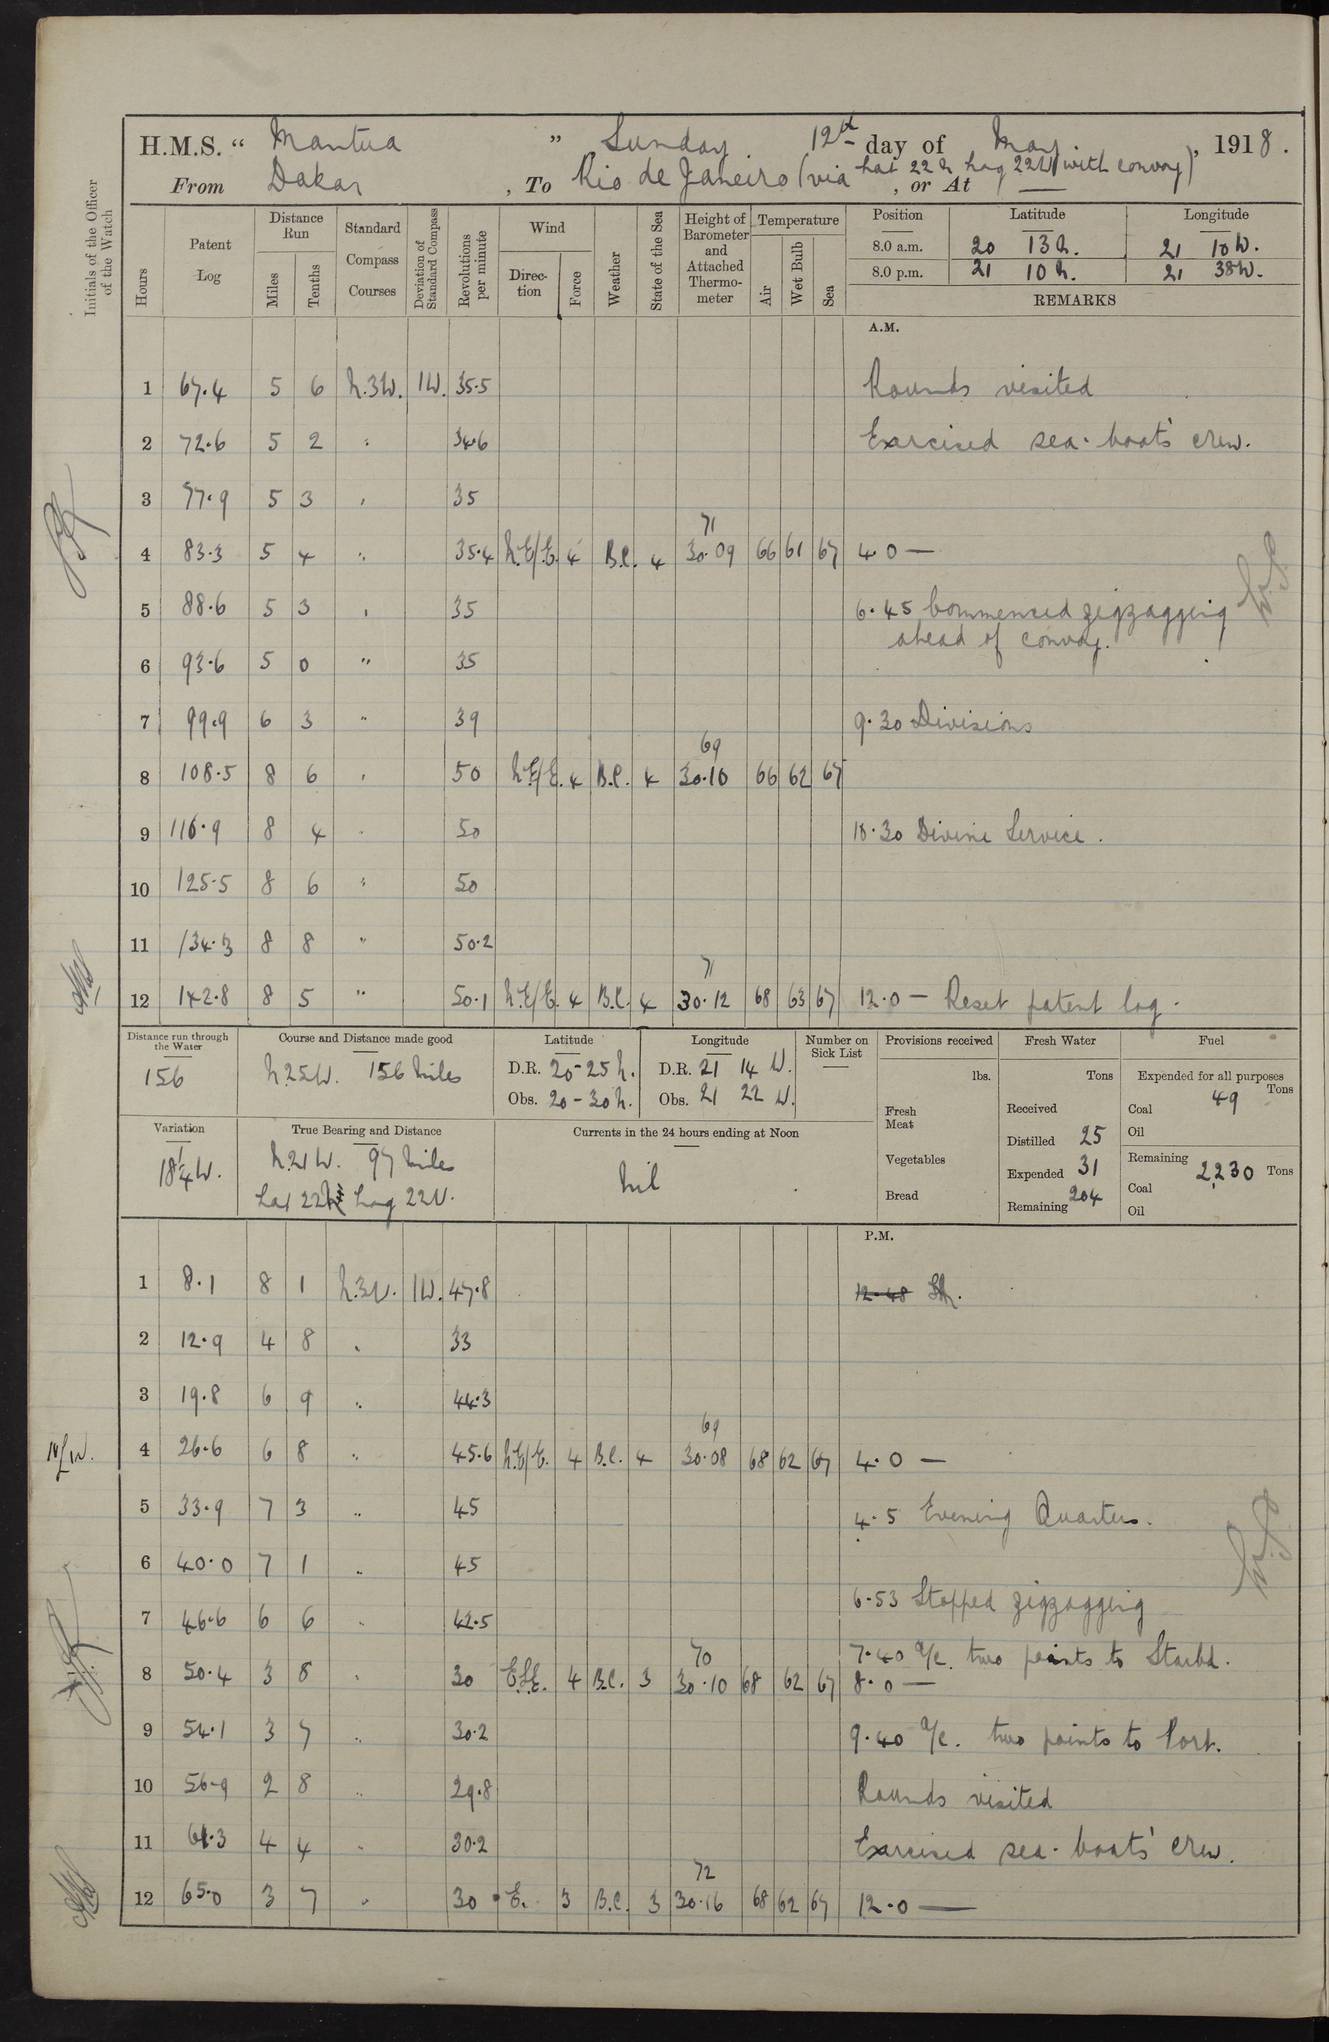 H.M.S. “ Mantua ” Sunday 12th day of May, 1918.
From Dakar, To Rio de Janeiro (via Lat 22 N Long 22W with convoy), or At —
Initials of the Officer of the Watch
Hours Patent Log Distance Run Miles Tenths Standard Compass Courses Deviation of Standard Compass Revolutions per minute Wind Direction Force Weather State of the Sea Height of Barometer and Attached Thermometer Temperature Air Wet Bulb Sea
Position Latitude Longitude
8.0 a.m. 20 13 N. 21 10 W.
8.0 p.m. 21 10 N. 21 38 W.
REMARKS
A.M.
1 67.4 5 6 N.3W. 1W. 35.5 Rounds visited
2 72.6 5 2 " 34.6 Exercised sea-boats' crew.
3 77.9 5 3 " 35
71
4 83.3 5 4 " 35.4 N.E/E. 4 B.C. 4 30.09 66 61 67 4.0 —
5 88.6 5 3 " 35 6.45 Commenced zigzagging
ahead of convoy.
6 93.6 5 0 " 35
7 99.9 6 3 " 39 9.30 Divisions
69
8 108.5 8 6 " 50 N.E/E. 4 B.C. 4 30.10 66 62 67
9 116.9 8 4 " 50 10.30 Divine Service.
10 125.5 8 6 " 50
11 134.3 8 8 " 50.2
71
12 142.8 8 5 " 50.1 N.E/E. 4 B.C. 4 30.12 68 63 67 12.0 — Reset patent log.
Distance run through the Water 156
Course and Distance made good N25W. 156 Miles
Latitude D.R. 20-25 N. Obs. 20-30 N.
Longitude D.R. 21 14 W. Obs. 21 22 W.
Number on Sick List
Provisions received lbs. Fresh Meat Vegetables Bread
Fresh Water Tons Received Distilled 25 Expended 31 Remaining 204
Fuel Expended for all purposes Tons Coal 49 Oil Remaining 2,230 Tons Coal Oil
Variation 18¼W.
True Bearing and Distance N.21W. 97 Miles
Lat 22N Long 22W.
Currents in the 24 hours ending at Noon Nil
P.M.
1 8.1 8 1 N.3W. 1W. 47.8 12.48
2 12.9 4 8 " 33
3 19.8 6 9 " 44.3
69
4 26.6 6 8 " 45.6 N.E/E. 4 B.C. 4 30.08 68 62 67 4.0 —
5 33.9 7 3 " 45 4.5 Evening Quarters.
6 40.0 7 1 " 45
6.53 Stopped zigzagging
7 46.6 6 6 " 42.5
7.40 a/c. two points to Starbd.
70
8 50.4 3 8 " 30 E.S.E. 4 B.C. 3 30.10 68 62 67 8.0 —
9 54.1 3 7 " 30.2 9.40 a/c. two points to Port.
10 56.9 2 8 " 29.8 Rounds visited
11 61.3 4 4 " 30.2 Exercised sea-boats' crew.
72
12 65.0 3 7 " 30 E. 3 B.C. 3 30.16 68 62 67 12.0 —